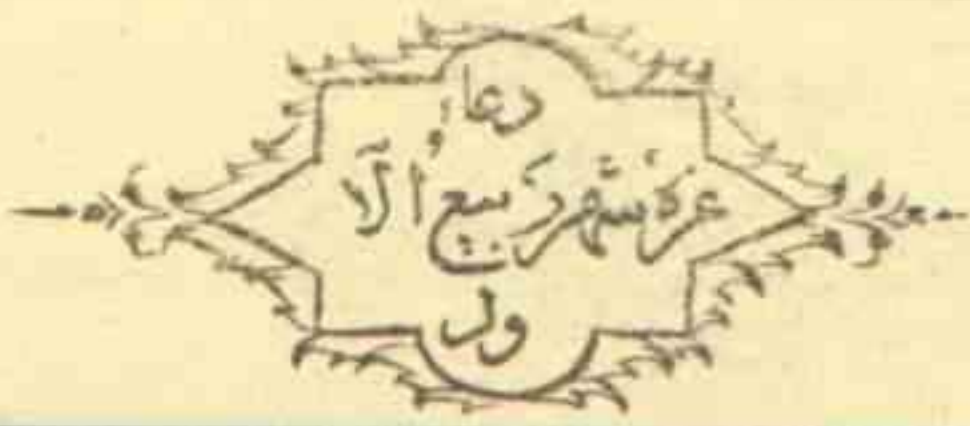 دعاء
غرة شهر ربيع الا
ول